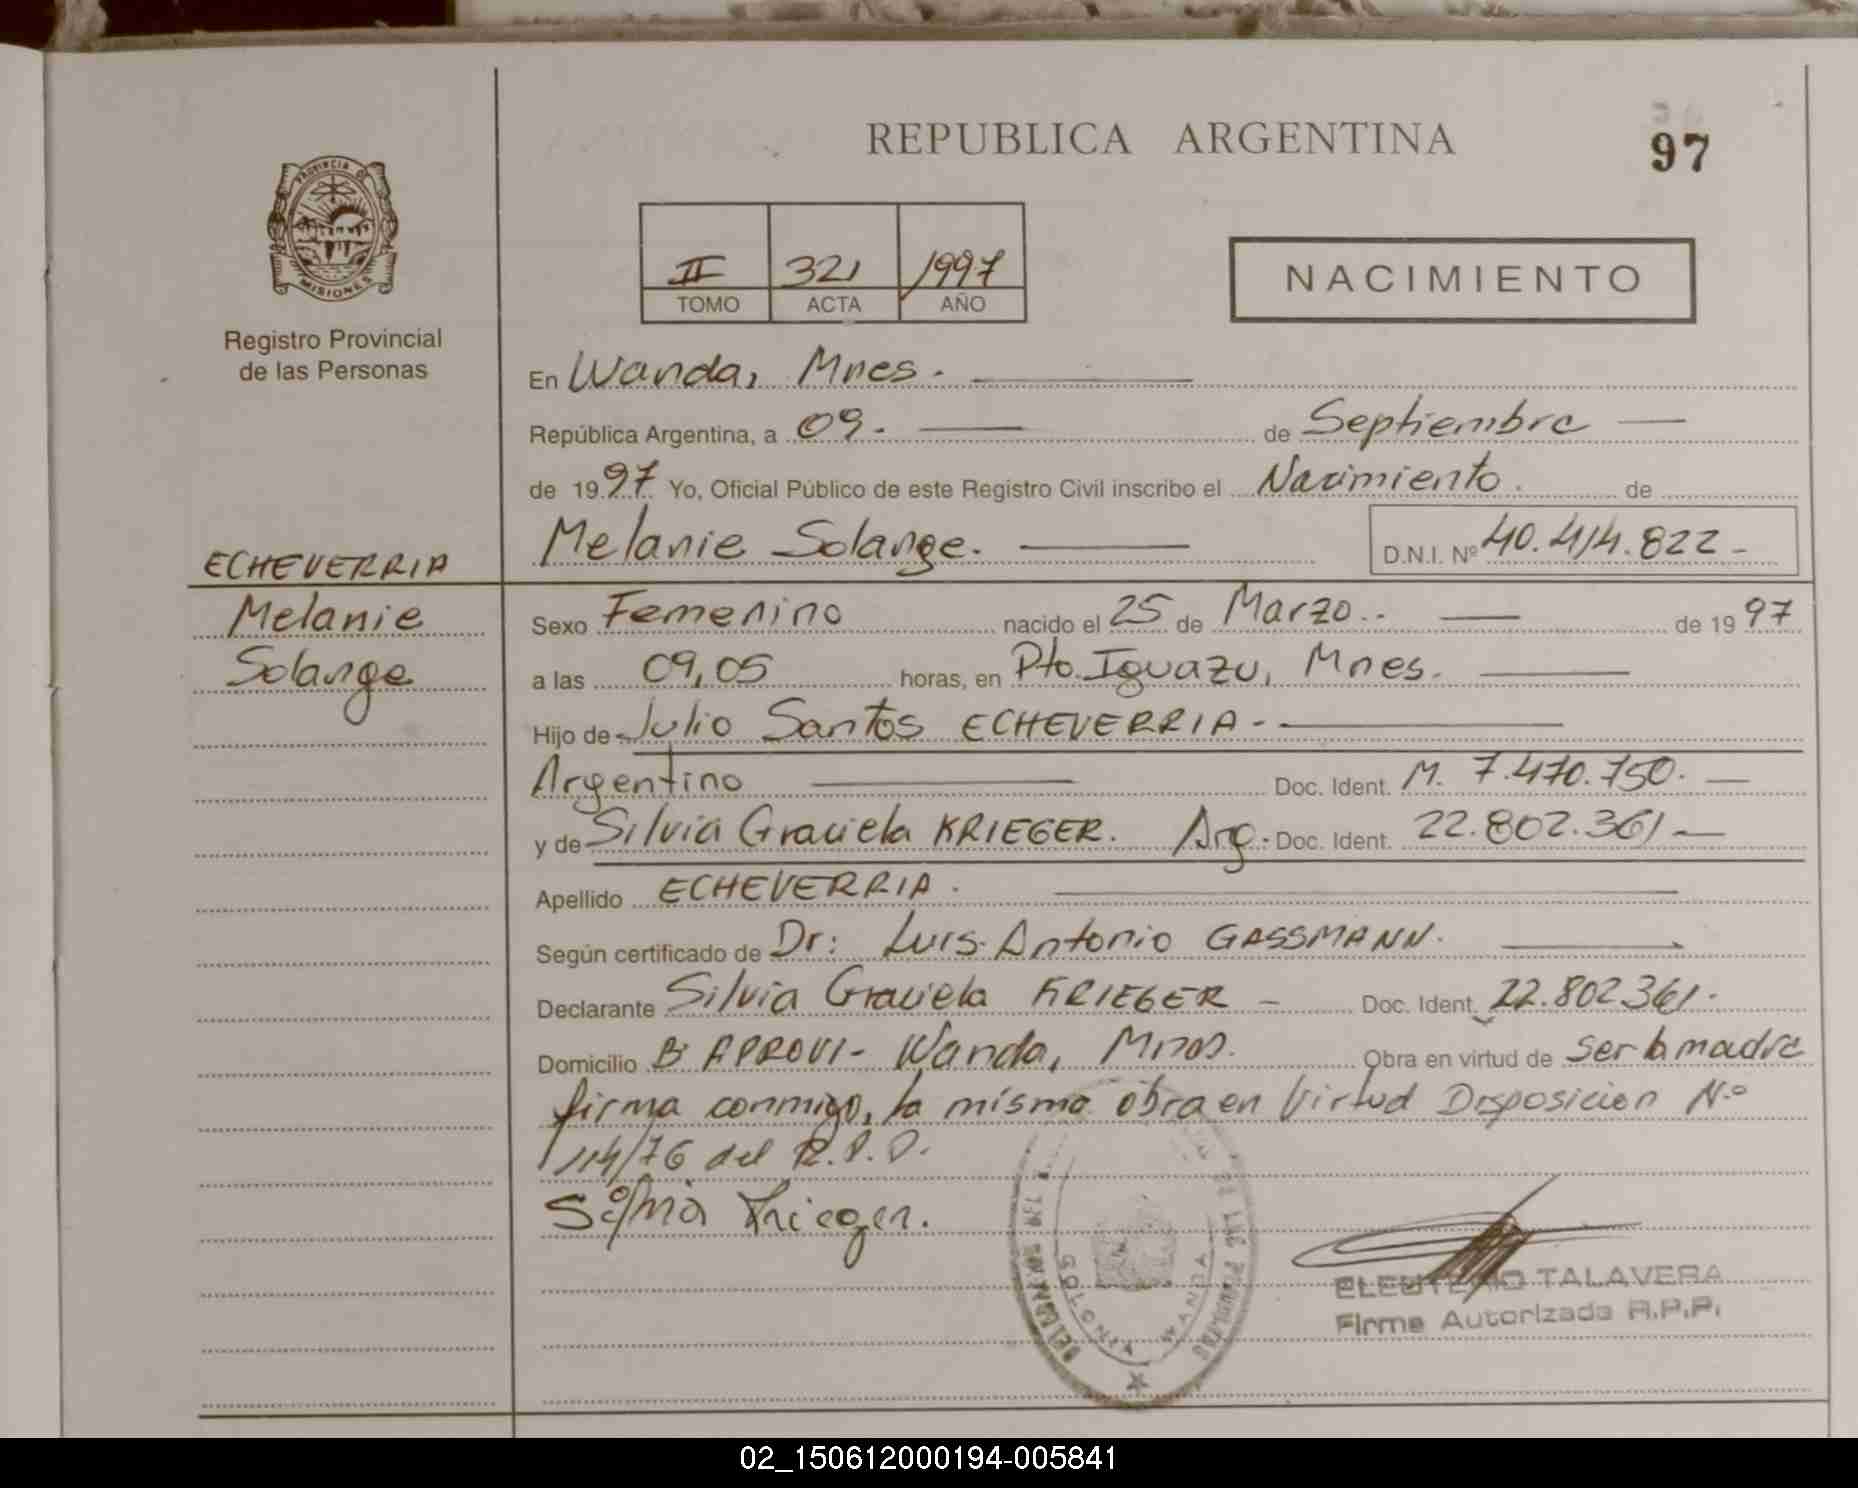 REPUBLICA ARGENTINA
97
PROVINCIA DE
MISIONES
Registro Provincial
de las Personas
II 321 1997
TOMO ACTA AÑO
NACIMIENTO
En Wanda, Mnes.
República Argentina, a 09. de Septiembre
de 1997 Yo, Oficial Público de este Registro Civil inscribo el Nacimiento. de
Melanie Solange. D.N.I. Nº 40.414.822
ECHEVERRIA
Melanie
Solange
Sexo Femenino nacido el 25 de Marzo.. de 1997
a las 09,05 horas, en Pto. Iguazu, Mnes.
Hijo de Julio Santos ECHEVERRIA
Argentino Doc. Ident. M. 7.470.750.
y de Silvia Graciela KRIEGER. Arg. Doc. Ident. 22.802.361
Apellido ECHEVERRIA.
Según certificado de Dr: Luis Antonio GASSMANN.
Declarante Silvia Graciela KRIEGER Doc. Ident. 22.802361.
Domicilio Bº APROVI - Wanda, Mnes. Obra en virtud de ser la madre
firma conmigo, la misma obra en Virtud Disposicion Nº
114/76 del R.P.P.
Silvia Krieger.
WANDA
ELEUTERIO TALAVERA
Firma Autorizada R.P.P.
02_150612000194-005841